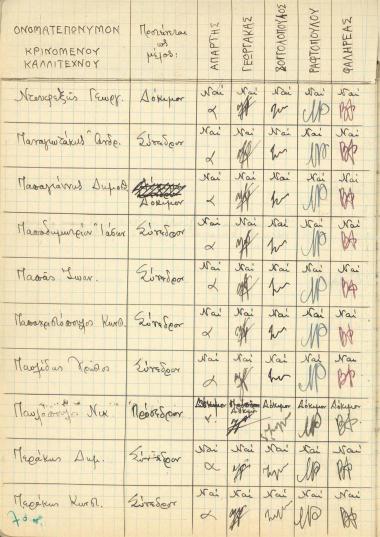 ΟΝΟΜΑΤΕΠΩΝΥΜΟΝ
ΚΡΙΝΟΜΕΝΟΥ
ΚΑΛΛΙΤΕΧΝΟΥ
Προτείνεται
ὡς
μέλος:
ΑΠΑΡΤΗΣ
ΓΕΩΡΓΑΚΑΣ
ΒΟΓΓΟΛΟΠΟΥΛΟΣ
ΡΑΦΤΟΠΟΥΛΟΥ
ΦΑΛΗΡΕΑΣ
Γεωργ. Δόκιμον Ναί Ναί Ναί Ναί Ναί
Παναγιωτάκης Ἀνδρ. Σύνεδρον Ναί Ναί Ναί Ναί Ναί
Παπαγιάννης Δόκιμον Ναί Ναί Ναί Ναί Ναί
Παπαδημητρίου Ἰάσων Σύνεδρον Ναί Ναί Ναί Ναί Ναί
Παπᾶς Ἰωαν. Σύνεδρον Ναί Ναί Ναί Ναί Ναί
Παπαχριστόπουλος Κωνσ. Σύνεδρον Ναί Ναί Ναί Ναί Ναί
Παυλίδης Σύνεδρον Ναί Ναί Ναί Ναί Ναί
Παυλόπουλος Νικ. Πρόσεδρον Δόκιμον Δόκιμον Δόκιμον Δόκιμον Δόκιμον
Περάκης Δημ. Σύνεδρον Ναί Ναί Ναί Ναί Ναί
Περάκης Κωνσ. Σύνεδρον Ναί Ναί Ναί Ναί Ναί